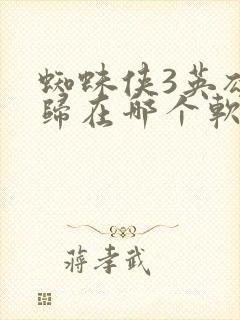 蜘蛛侠3英
歸在哪个軟
蔣孝武